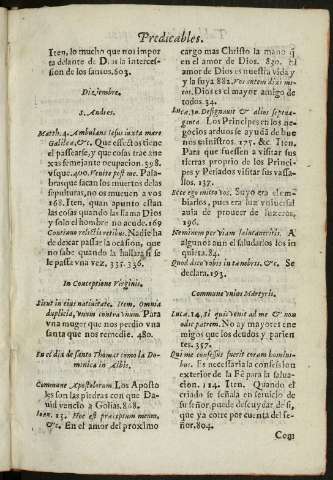 Predicables.
Iten, lo mucho que nos impor
ta delante de Dios la interces-
sion de los santos. 603.
Diziembre.
S. Andres.
Matth. 4. Ambulans Iesus iuxta mare
Galileæ, &c. Que effectos tiene
el passearse, y que cosas trae ane
xas femejante ocupacion. 398.
vsque. 400. Venite post me. Pala-
bras que sacan los muertos de las
sepulturas, no es mucho a vos
168. Iten, quan apunto estan
las cosas quando las llama Dios
y solo el hombre no acude. 169
Continuo relictis retibus. Nadie ha
de dexar passar la ocasion, que
no sabe quando la hallarà si se
le passa vna vez. 335. 336.
In Conceptione Virginis.
Sicut in eius natiuitate. Item. Omnia
duplicia, vnum contra vnum. Para
vna muger que nos perdio vna
santa que nos remedie. 480.
En el dia de santo Thomas como la Do-
minica in Albis.
Commune Apostolorum Los Aposto
les son las piedras con que Da-
uid vencio a Golias. 868.
Ioan. 15. Hoc est præceptum meum,
&c. En el amor del proximo
cargo mas Christo la mano que
en el amor de Dios. 820. El
amor de Dios es nuestra vida y
y la suya 882. Vos autem dixi mi-
cos. Dios es el mayor amigo de
todos. 34.
Lucæ. 10. Designauit & alios septua-
ginta. Los Principes en los ne-
gocios arduos se ayuda de bue
nos ministros. 175. &c. Iten.
Para que fuessen a visitar sus
tierras proprio de los Princi-
pes y Perlados visitar sus vassa-
llos. 137.
Ecce ego mitto vos. Suyo era em-
biarlos, pues era luz vniuersal
auia de proueer de luzeros.
196.
Neminem per viam salutaueritis. A
algunos aun el saludarlos los in
quieta. 84.
Quod dico vobis in tenebris. &c. Se
declara. 193.
Commune vnius Martyris.
Lucæ. 14. Si quis venit ad me & non
odit patrem. No ay mayores ene
migos que los deudos y parien
tes. 357.
Qui me confessus fuerit coram homini-
bus. Es necessaria la confession
exterior de la Fè para la salua-
cion. 124. Iten. Quando el
criado se señala en seruicio de
su señor, puede descuydar de si,
que ya corre por cuenta del se-
ñor. 804.
Con